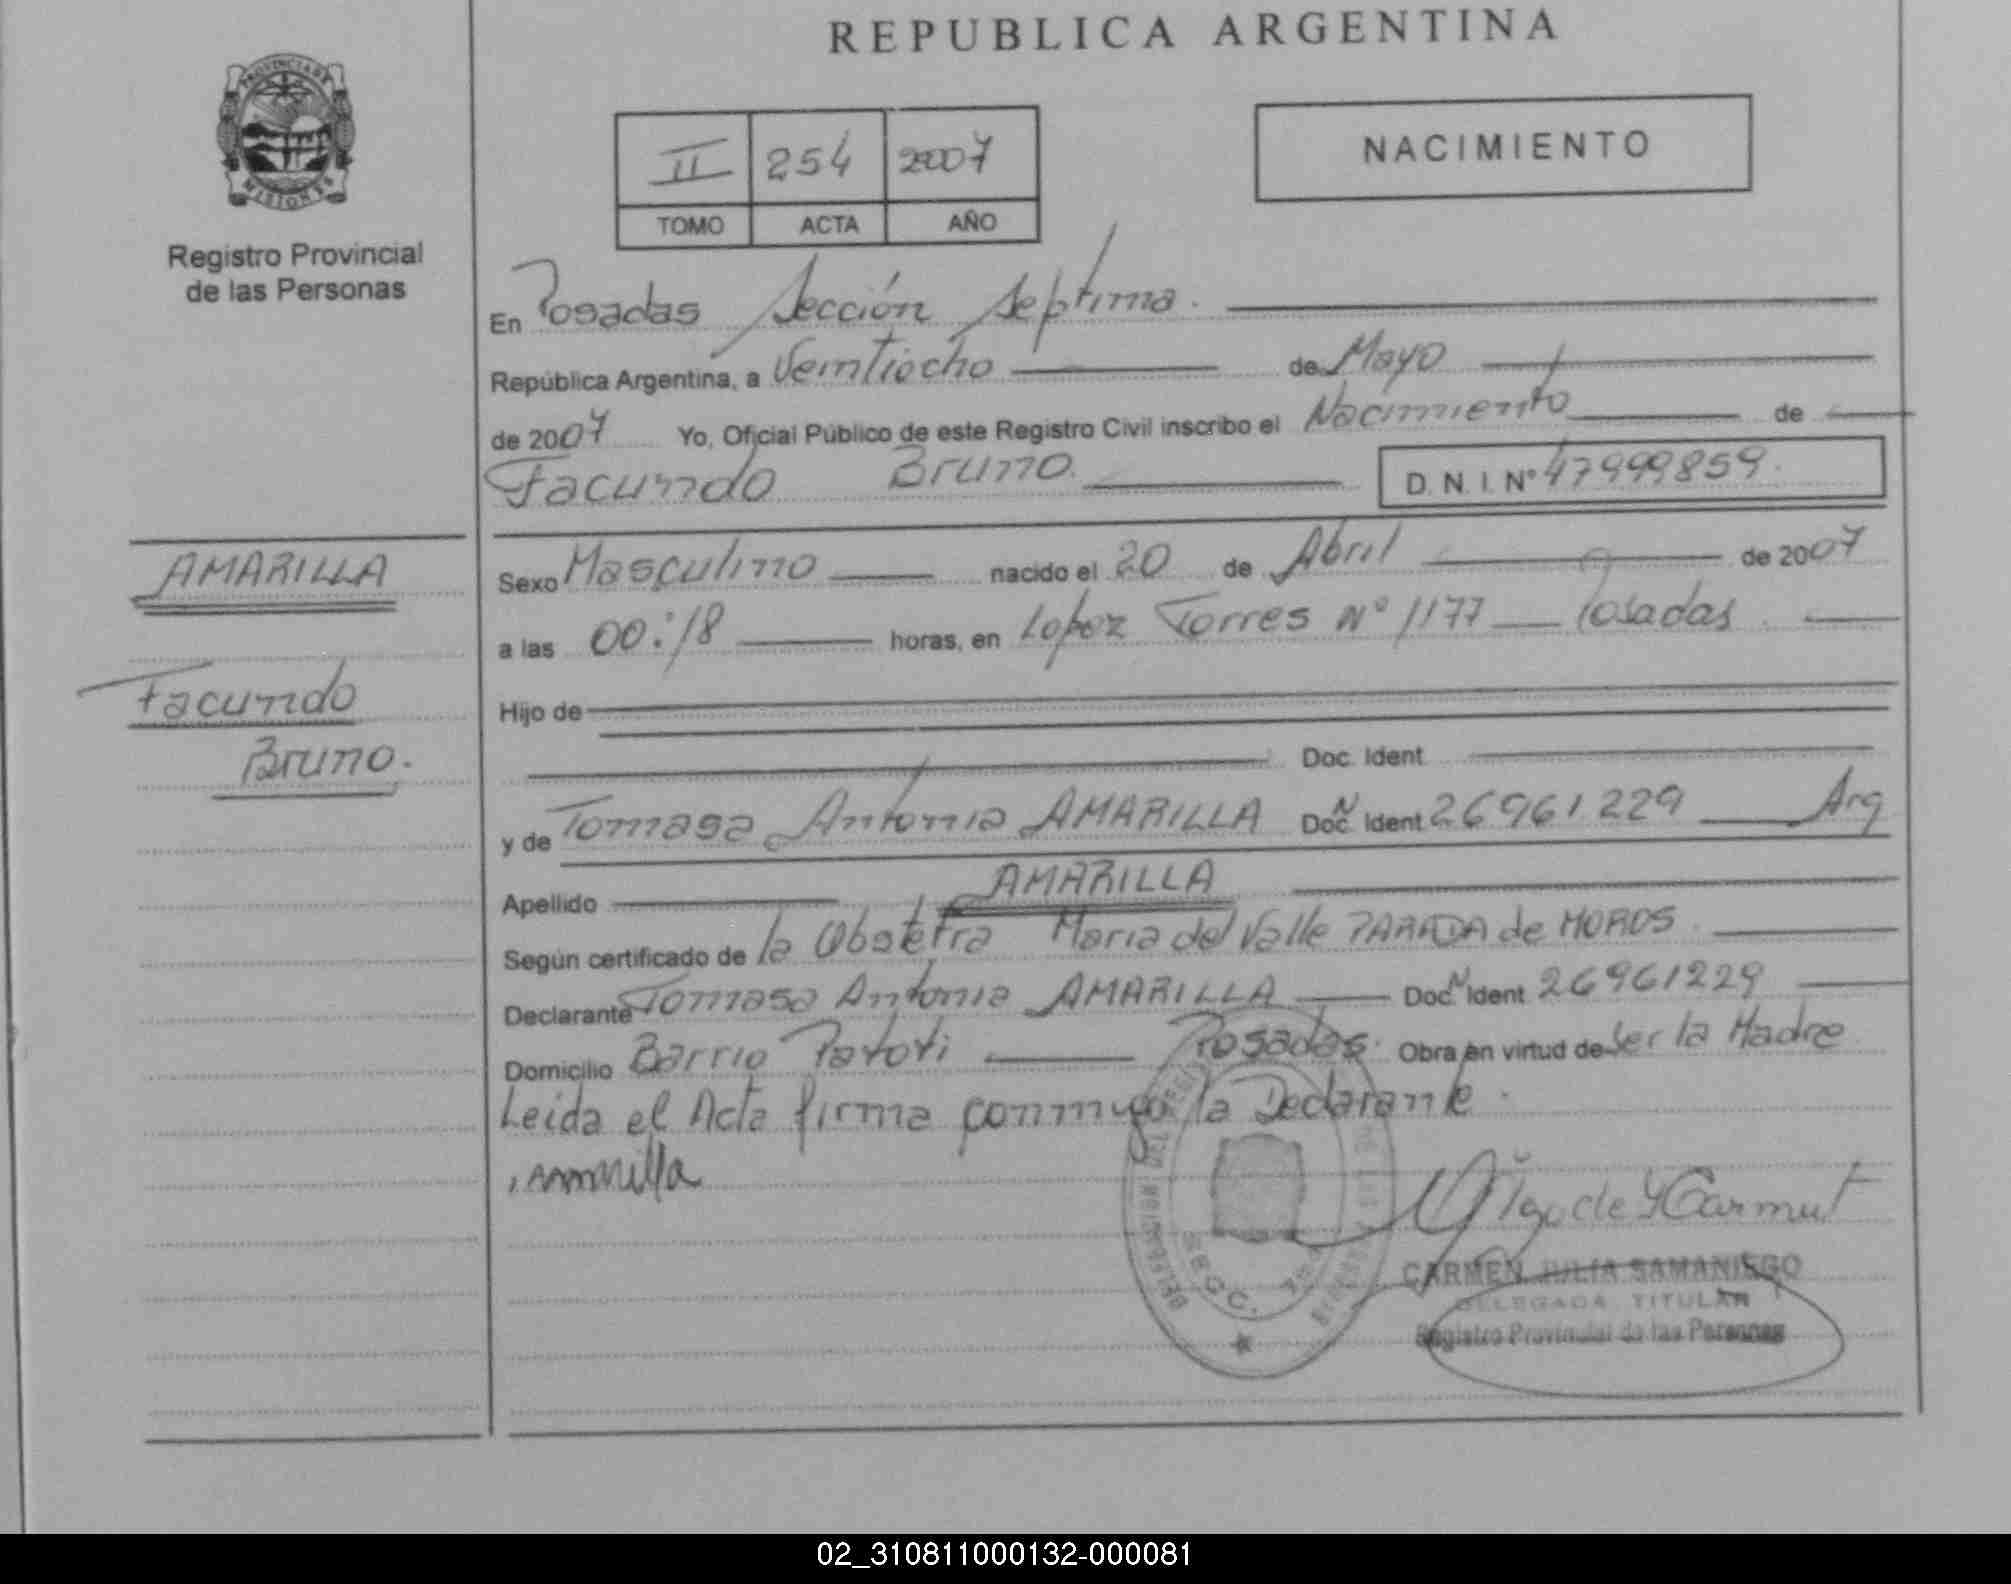 REPUBLICA ARGENTINA
PROVINCIA DE
MISIONES
Registro Provincial
de las Personas
II 254 2007
TOMO ACTA AÑO
NACIMIENTO
En Posadas Sección Septima.
República Argentina, a Veintiocho de Mayo
de 2007 Yo, Oficial Público de este Registro Civil inscribo el Nacimiento de
Facundo Bruno. D.N.I. Nº 47999859.
AMARILLA
Facundo
Bruno.
Sexo Masculino nacido el 20 de Abril de 2007
a las 00:18 horas, en Lopez Torres Nº 1177 Posadas.
Hijo de
Doc. Ident.
y de Tomasa Antonia AMARILLA Doc. Ident. 26961229 Arg
Apellido AMARILLA
Según certificado de la Obstetra Maria del Valle PARADA de MOROS.
Declarante Tomasa Antonia AMARILLA Doc. Ident. 26961229
Domicilio Barrio Pototi Posadas. Obra en virtud de Ser la Madre
Leida el Acta firma conmigo la Declarante.
CARMEN JULIA SAMANIEGO
DELEGADA TITULAR
Registro Provincial de las Personas
02_310811000132-000081